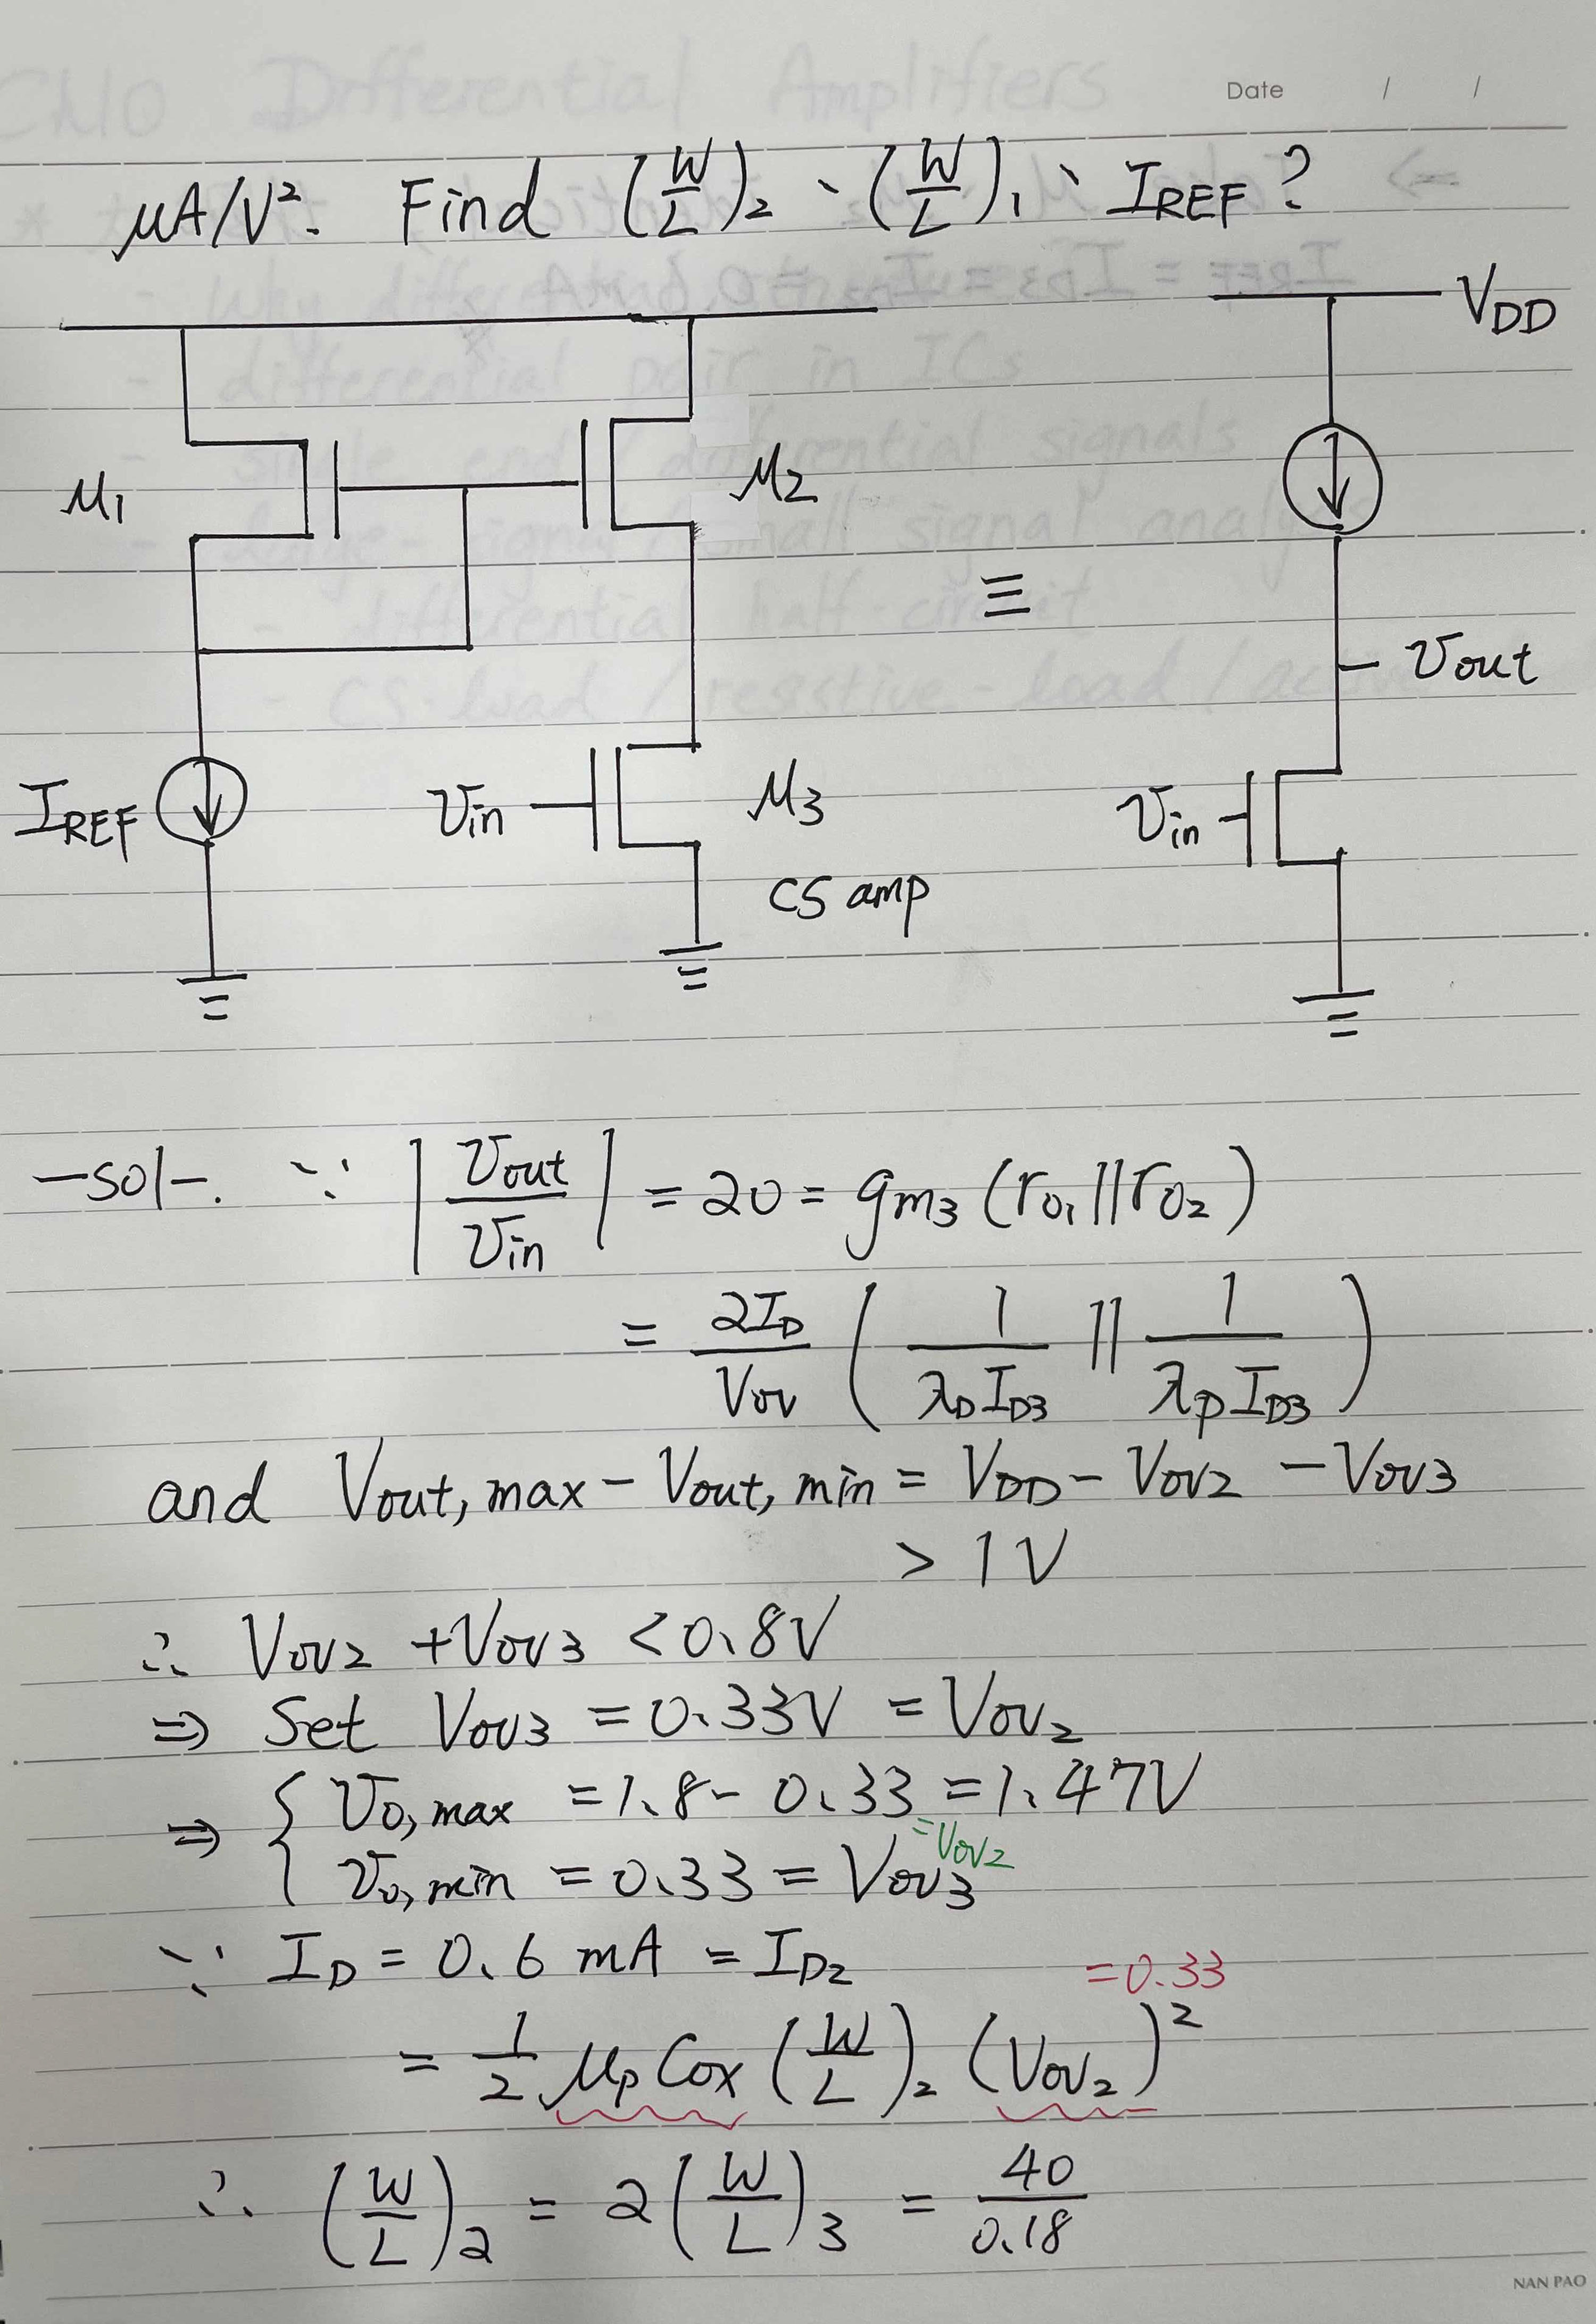 Date / /
μA/V². Find (W/L)₂、(W/L)₁、IREF?
VDD
M1
M2
≡
Vout
IREF
Vin
M3
Vin
CS amp
-sol-. ∵ |Vout/Vin| = 20 = gm3 (ro1||ro2)
= 2ID/Vov (1/λDID3 || 1/λPID3)
and Vout,max - Vout,min = VDD - Vov2 - Vov3
> 1V
∴ Vov2 + Vov3 < 0.8V
⇒ Set Vov3 = 0.33V = Vov2
⇒ { Vo,max = 1.8 - 0.33 = 1.47V
= Vov2
Vo,min = 0.33 = Vov3
∵ ID = 0.6 mA = ID2
= 0.33
= 1/2 μpCox (W/L)₂ (Vov2)²
∴ (W/L)₂ = 2(W/L)₃ = 40/0.18
NAN PAO